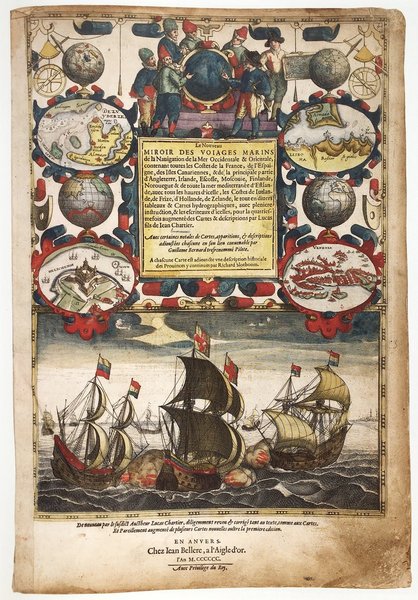 Le Nouveau
MIROIR DES VOIAGES MARINS
de la Navigation de la Mer Occidentale & Orientale,
contenant toutes les Costes de la France, de l'Espai-
gne, des Isles Canariennes, & de la principale partie
d'Angleterre, Irlande, Escosse, Moscouie, Finlande,
Noruuegue & de toute la mer mediterranée d'Estlan-
de, avec tous les haures d'icelle, les Costes de Iutlan-
de, de Frize, d'Hollande, de Zelande, le tout en divers
tableaux & Cartes hydrographiques, avec pleniere
instruction, & les escriteaux d'icelles, pour la quatries-
me fois augmenté des Cartes & descriptions par Lucas
fils de Iean Chartier.
Avec certaines notales de Cartes, apparitions, & descriptions
adioustées chascune en son lieu convenable par
Guillame Bernard tresrenommé Pilote.
A chascune Carte est adioustée vne description historiale
des Prouinces y contenues par Richard Slotboom.
De nouveau par le susdict Autheur Lucas Chartier, diligemment reveu & corrigé tant au texte, comme aux Cartes,
Et Pareillement augmenté de plusieurs Cartes nouvelles oultre la premiere edition.
EN ANVERS.
Chez Iean Bellere, a l'Aigle d'or.
l'An M.CCCCCC.
Avec Privilege du Roy.